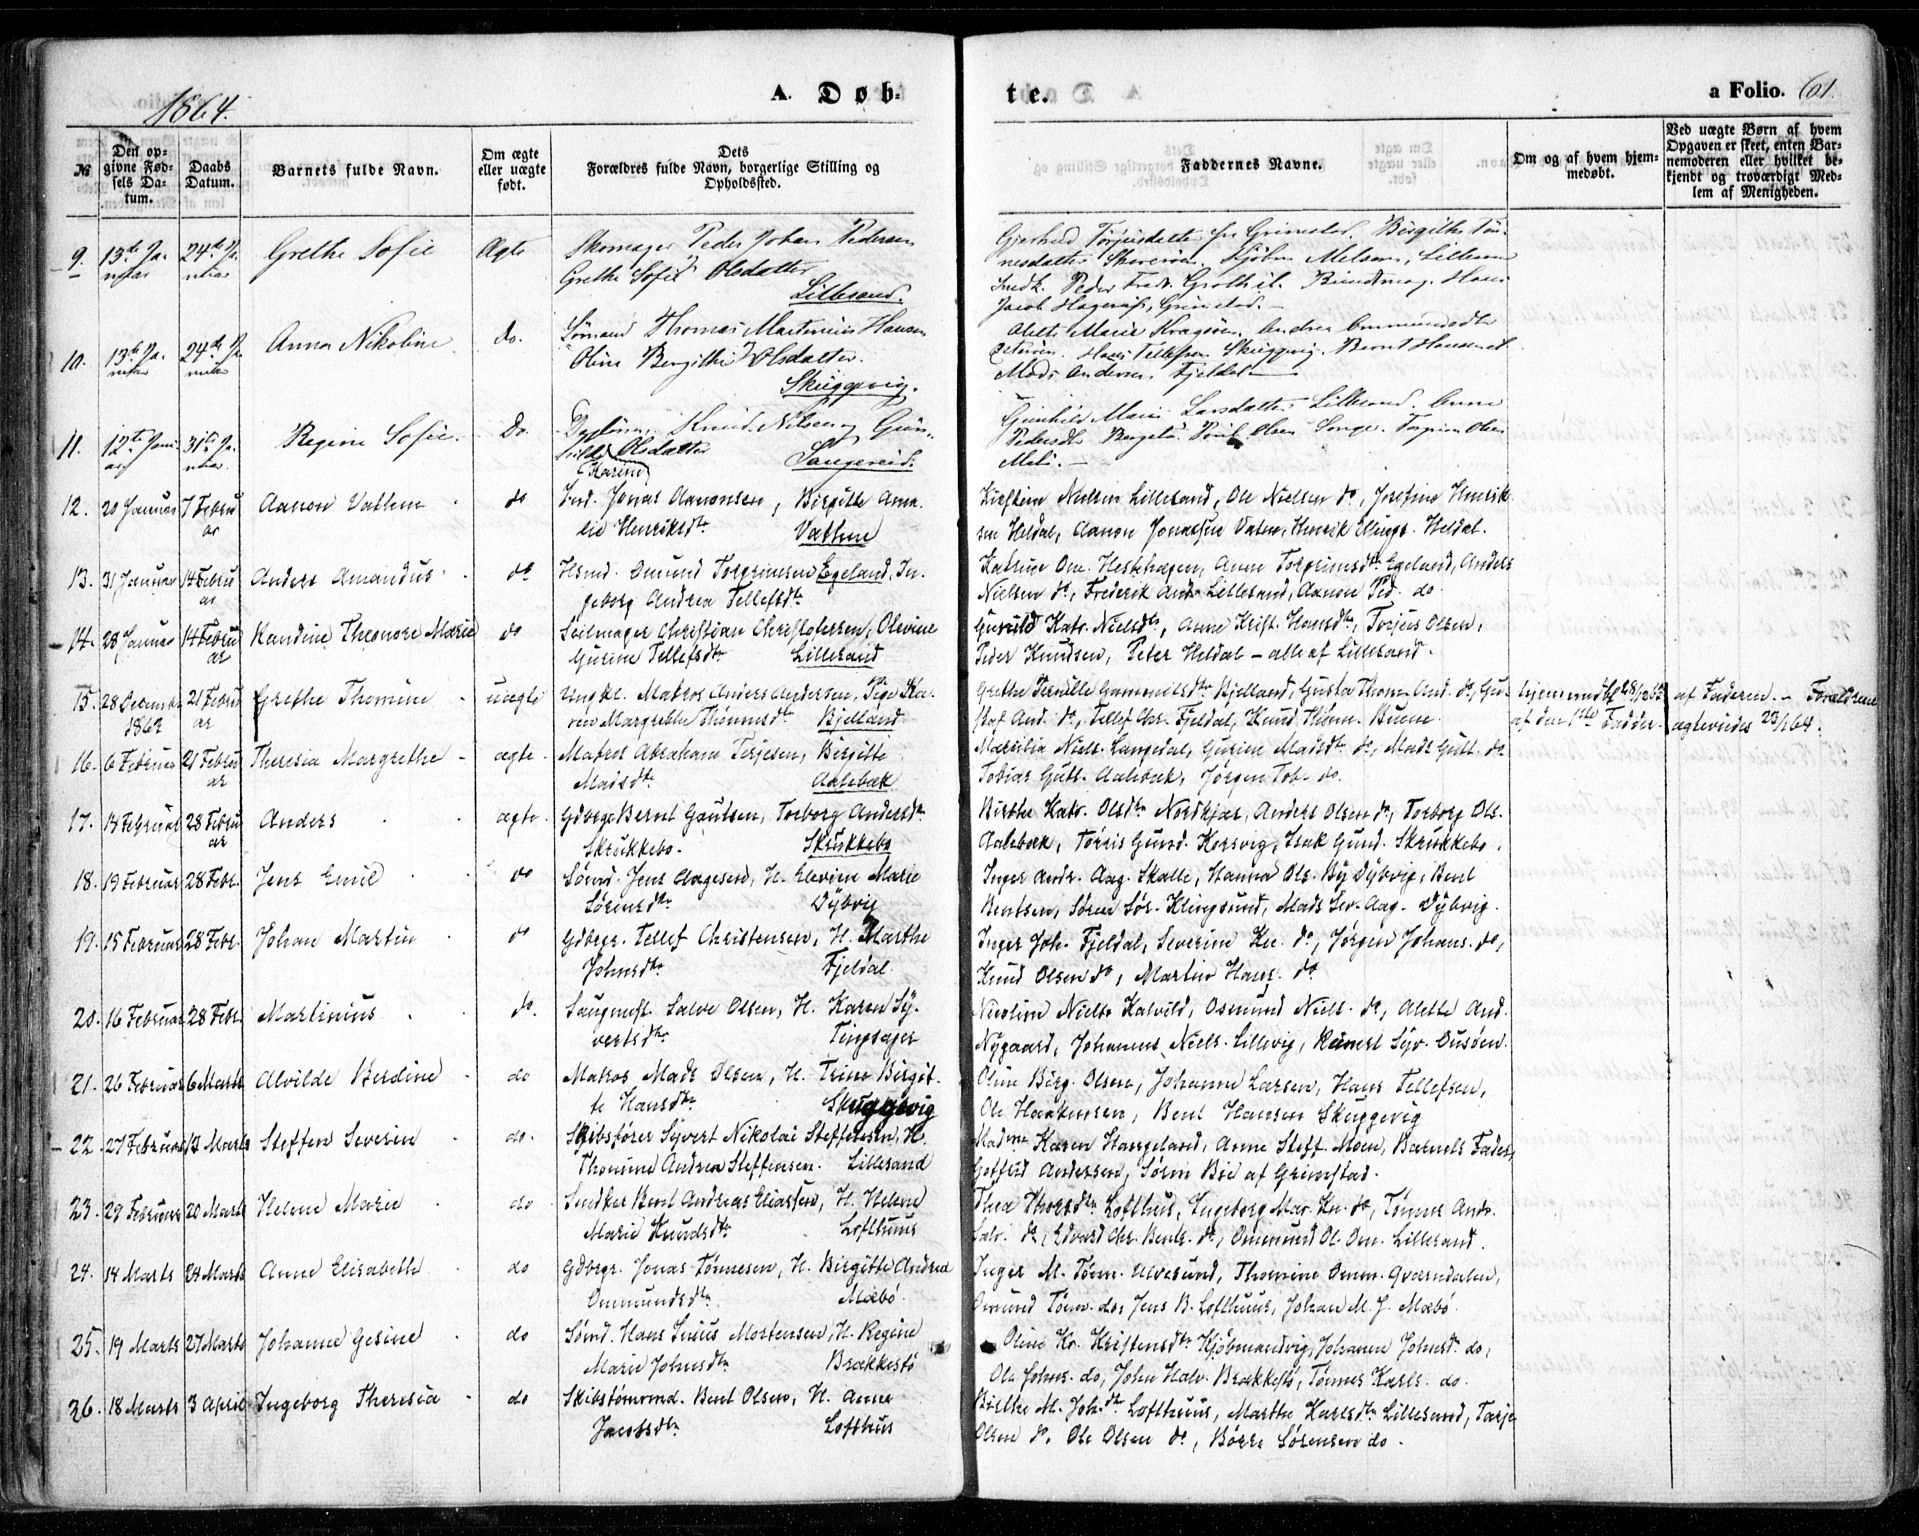 1864.
A. Døb-
te.
a Folio. 61.
№
Den op-
givne Fød-
sels Da-
tum.
Daabs
Datum.
Barnets fulde Navn.
Om ægte
eller uægte
født.
Dets
Forældres fulde Navn, borgerlige Stilling og
Opholdssted.
Faddernes Navne.
Om og af hvem hjem-
medøbt.
Ved uægte Børn af hvem
Opgaven er skeet, enten Bar-
nemoderen eller hvilket be-
kjendt og troværdigt Med-
lem af Menigheden.
9. 13de Ja- 24de Ja- Grethe Sofie Ægte Skomager Peder Johan Pedersen
nuar nuar Grethe Sofie Olsdatter
Lillesand.
Jacob Grimstad.
10. 13de Ja- 24de Ja- Anna Nikoline Do. Sømand Thomas Martinius Hansen
nuar nuar Oline Bergithe Olsdatter.
Skuggevig.
Mads Andersen, Fjeldal
11. 12te Janu- 31te Ja- Regine Sofie. Do. Knud Nilsen og Gun-
ar nuar hilde Olsdatter Sangereid.
(Karine)
Gunhild Marie Larsdatter Lillesand. Anne
12. 20 Januar 7 Febru Aanon Vathne do Jonas Aanonsen, Birgitte Ama-
ar lie Henriksdtr Vathne
Kirstine Nielsen Lillesand, Ole Nielsen do, Josefine Henrik-
sen Heldal, Aanon Jonassen Vatne, Henrik Heldal.
13. 31 Januar 14 Febru Anders Amandus do Osmund Torgrimsen Egeland, In-
ar geborg Andrea Tellefsdtr
Katrine Om. Hestehagen, Anne Torgrimsdtr Egeland, Anders
Nielsen do, Frederik And. Lillesand, Aanon Ped. do
14. 28 Januar 14 Febru Kandine Theonore Marie do Seilmager Christian Christophersen, Olevine
ar Gurine Tellefsdtr Lillesand
Gunild Katr. Nielsdtr, Anne Krist. Hansdtr, Torjus Olsen,
Peder Knudsen, Peter Heldal – alle af Lillesand.
15. 28 Decembr 21 Febru Grethe Thomine uægte Ungkl. Matros Anders Andersen, Pige Ka-
1863 ar ren Margrethe Thommsdtr Bjelland
Grethe Pernille Gunmuldsdtr Bjelland, Gustav Thom. And. do, Gu-
stof And. do, Tellef Chr. Fjeldal, Knud Thom. Buene
hjemmedbt 28/12 63
af den 1ste Fadder.
af Faderen. – Forældrene
ægteviedes 23/1 64.
16. 6 Februar 21 Febru Theresia Margrethe ægte Matros Abraham Terjesen, Birgitte
ar Madsdtr Aalebæk
Marsilia Niels. Langedal, Gurine Madsdtr do, Mads Gutt. do
Tobias Gutt. Aalebæk, Jørgen Tob. do.
17. 14 Februar 28 Febru Anders ægte Gdbrgr Bernt Gautsen, Torborg Andersdtr
ar Skrukkebo. Skrukkebo
Birthe Katr. Olsdtr Nordkjær, Anders Olsen do, Torborg Ols.
Aalebæk, Tørris Gund. Korsvig, Isak Gund. Skrukkebo.
18. 19 Februar 28 Febr. Jens Emil do Sømd. Jens Aagesen, H. Elevine Marie
Sørensdtr Dybvig
Inger Andr. Aag. Skalle, Hanna Ols. By Dybvig, Bent
Bentsen, Søren Sør. Klingsund, Mads Sev. Aag. Dybvig.
19. 15 Februar 28 Febr. Johan Martin do Gdbrgr. Tellef Christensen, H. Marthe
Johnsdtr Fjeldal
Inger Joh. Fjeldal, Severine Kn. do, Jørgen Johans. do,
Knud Olsen do, Martin Hans. do
20. 16 Februar 28 Febr. Martinius do. Saugmest. Salve Olsen, H. Karen Sy-
vertsdtr Tingsager
Nicoline Niels. Kalvild, Osmund Niels. do, Alette And.
Nygaard, Johannes Niels. Lillevig, Syv. Ousøen
21. 26 Februar 6 Marts Alvilde Berdine do Matros Mads Olsen, H. Trine Birgit-
te Hansdtr Skuggevig
Oline Birg. Olsen, Johanne Larsen, Hans Tellefsen,
Ole Haakensen, Bent Hansen Skuggevig
22. 27 Februar 12 Marts Steffen Severin do. Skibsfører Syvert Nikolai Steffensen, H.
Thomine Andrea Steffensen. Lillesand
Madme Karen Hangeland, Anne Steff. Moen, Barnets Fader,
Gotfrid Andersen, Søren Bøe af Grimstad.
23. 29 Februar 20 Marts Helene Marie do Snedker Bent Andreas Eliassen, H. Helene
Marie Knudsdtr Lofthuus
Thea Thorsdtr Lofthus, Ingeborg Mar. Kn. do, Tønnes Andr.
Salv. do, Edvard Chr. Bents. do, Ommund Ol. Om. Lillesand.
24. 14 Marts 24 Marts Anne Elisabeth do Gdbrgr. Jonas Tønnesen, H. Birgitte Andrea
Ommundsdtr. Mæbø.
Inger M. Tønn. Ulvesund, Thomine Omm. Qværndalen,
Omund Tønn. do, Jens B. Lofthuus, Johan M. J. Mæbø.
25. 19 Marts 27 Marts Johanne Gesine do Sømd. Hans Juius Mortensen, H. Regine
Marie Johnsdtr Brækkestø
Oline Kr. Kristensdtr Kjøbmandvig, Johanne Johnsdtr do,
Ole Johns. do, John Halv. Brækkestø, Tønnes Karls. do.
26. 18 Marts 3 April Ingeborg Theresia do Skibstømmd. Bent Olsen, H. Anne
Jacobsdtr Lofthus
Birthe M. Joh.dtr Lofthuus, Marthe Karlsdtr Lillesand, Tarje
Olsen do, Ole Olsen do, Børre Sørensen do.